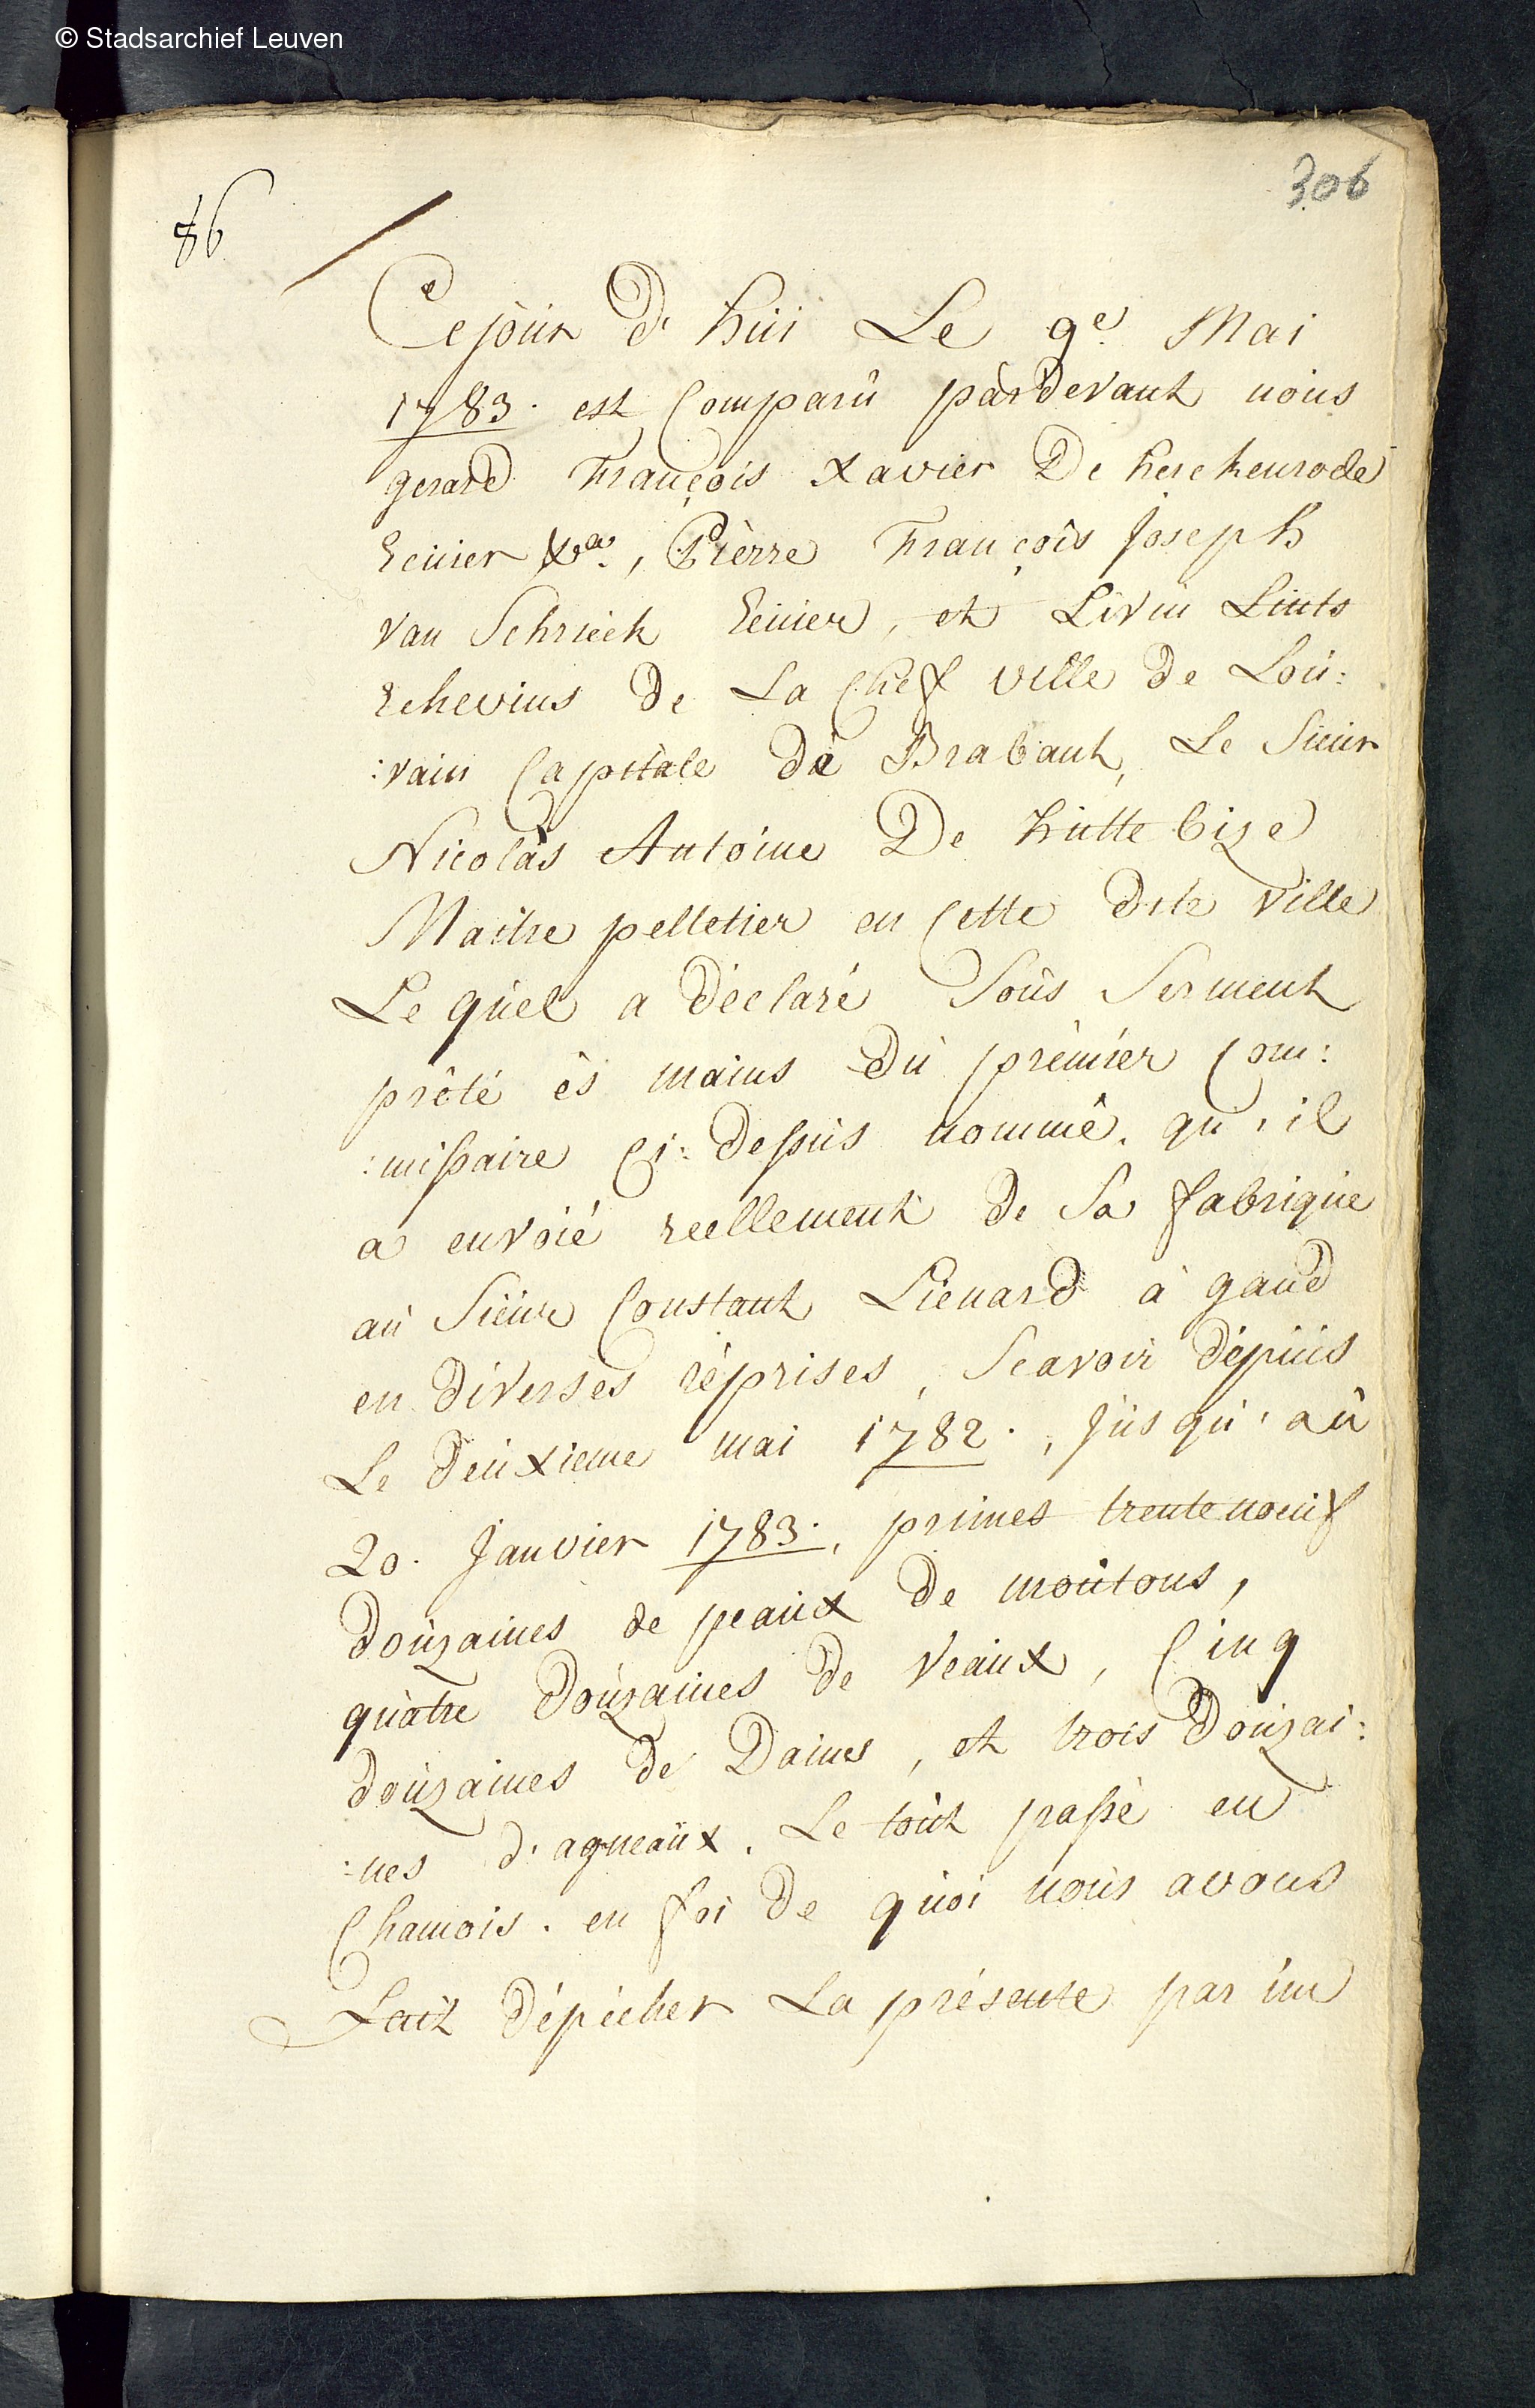 © Stadsarchief Leuven
306
86
Cejour d'hui Le 9e. Mai
1783. est Comparû pardevant nous
gerard François Xavier De herckenrode
Ecuier &ca., Pièrre François Joseph
van Schrieck Ecuier, et Livin Lints
Echevins de La Chef ville de Lou:
:vain Capitale de Brabant, Le Sieur
Nicolas Antoine De huttebize
Maitre pelletier en Cette dite ville
Le quel a déclaré Sous Serment
prêté ès mains du prémier Com:
:missaire Ci: dessus nommê. qu'il
a envoié reellement de Sa fabrique
au Sieur Constant Liénard à gand
en diverses réprises, Scavoir dépuis
Le deuxieme mai 1782., jusqu'au
20. Janvier 1783., primes trente noeuf
douzaines de peaux de moutons,
quatre douzaines de veaux, Cinq
douzaines de Daims, et trois douzai:
:nes d'agneaux. Le tout passé en
Chamois. en foi de quoi nous avons
Fait dépécher La présente par un